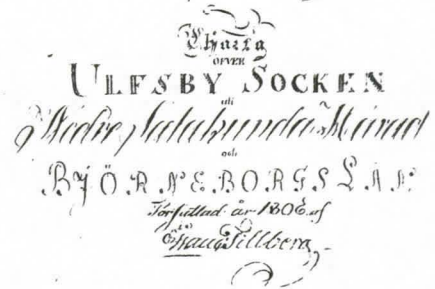 Charta
öfver
ULFSBY SOCKEN
uti
Nedre Satakunda Härad
och
BJÖRNEBORGS LÄN
Författad år 1806 af
Isaac Tillberg